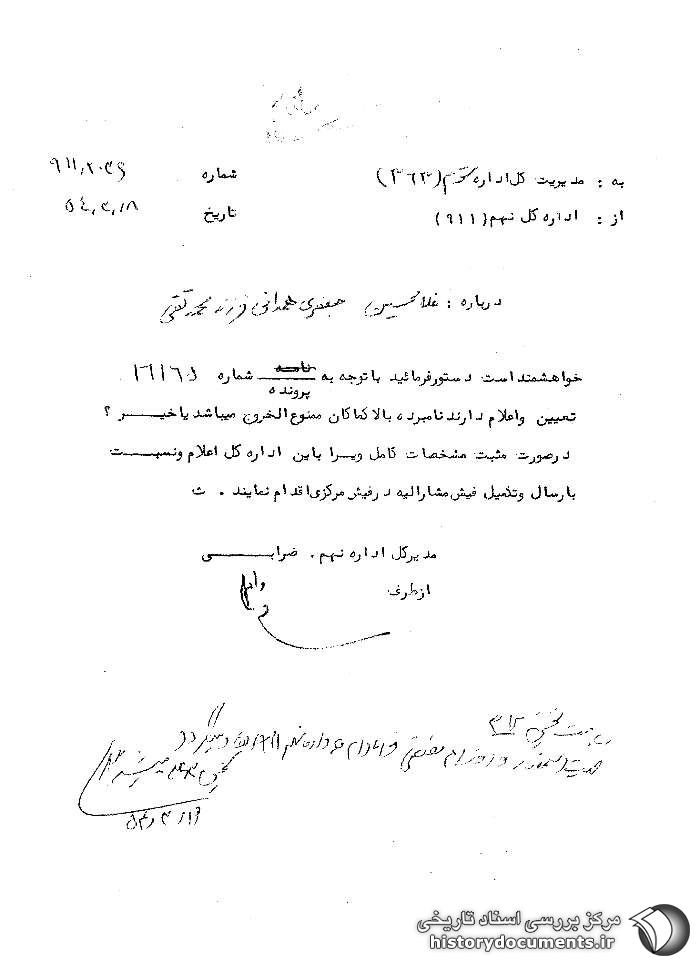 به : مدیریت کل اداره سوم (۳۶۳) شماره ۹۱۱٫۲۰۳۶
از : اداره کل نهم (۹۱۱) تاریخ ۵۴٫۳٫۱۸
درباره : غلامحسین جعفری همدانی فرزند محمدتقی
خواهشمند است دستور فرمائید با توجه به نامه شماره ۱۶۱۶۵
پرونده
تعیین و اعلام دارند نامبرده بالا کماکان ممنوع الخروج میباشد یا خیر ؟
در صورت مثبت مشخصات کامل ویرا باین اداره کل اعلام و نسبت
بارسال و تکمیل فیش مشارالیه در فیش مرکزی اقدام نمایند . ث
مدیر کل اداره نهم . ضرابی
از طرف
بخش ۳۱۲
۵۴٫۳٫۱۹
مرکز بررسی اسناد تاریخی
historydocuments.ir